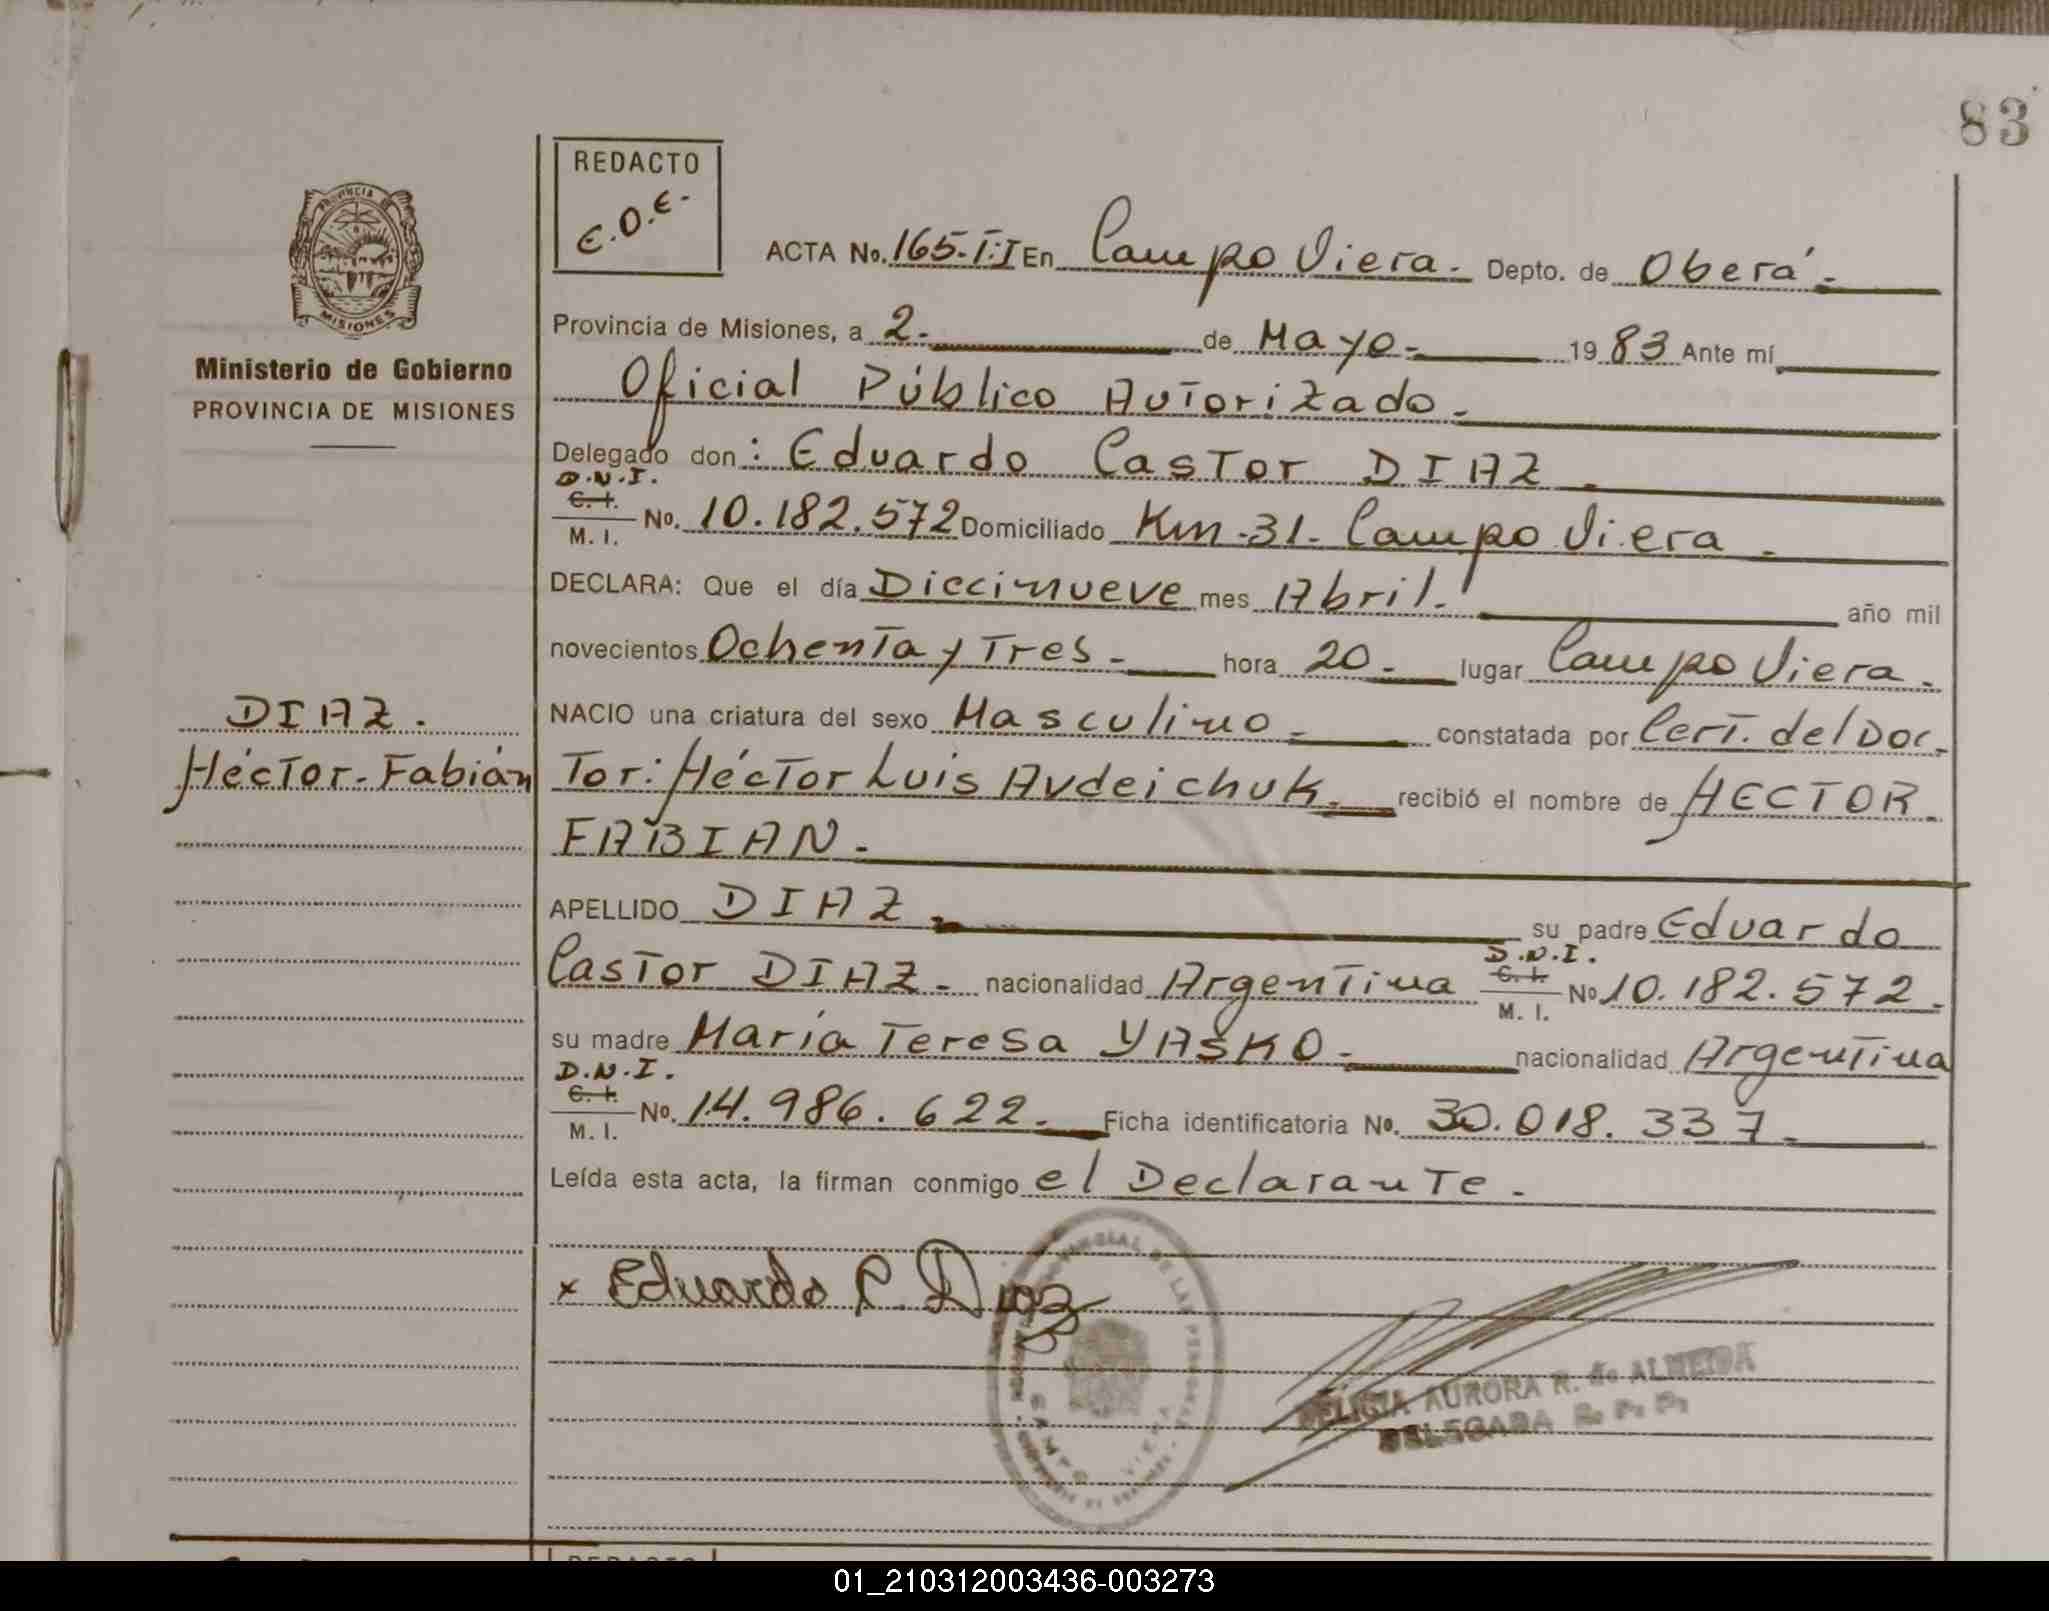 83
REDACTO
E.O.E.-
PROVINCIA DE
MISIONES
Ministerio de Gobierno
PROVINCIA DE MISIONES
ACTA No. 165-T:I En Campo Viera.- Depto. de Oberá.-
Provincia de Misiones, a 2.- de Mayo.- 19 83 Ante mí
Oficial Público Autorizado.-
Delegado don: Eduardo Castor DIAZ.-
D.N.I.
C. I.
M. I. No. 10.182.572 Domiciliado Km.-31.- Campo Viera.-
DECLARA: Que el día Diecinueve mes Abril.- año mil
novecientos Ochenta y Tres.- hora 20.- lugar Campo Viera.-
NACIO una criatura del sexo Masculino.- constatada por Cert. del Doc-
tor: Héctor Luis Avdeichuk.- recibió el nombre de HECTOR.-
FABIAN.-
DIAZ.
Héctor-Fabián
APELLIDO DIAZ.- su padre Eduardo
Castor DIAZ.- nacionalidad Argentina D.N.I. C. I. M. I. No 10.182.572.-
su madre María Teresa YASKO.- nacionalidad Argentina
D.N.I.
C. I.
M. I. No. 14.986.622.- Ficha identificatoria No. 30.018.337.-
Leída esta acta, la firman conmigo el Declarante.-
x Eduardo C. Diaz
DE LAS PERSONAS
CAMPO VIERA
FELICIA AURORA R. de ALMEIDA
DELEGADA R. P. P.
01_210312003436-003273